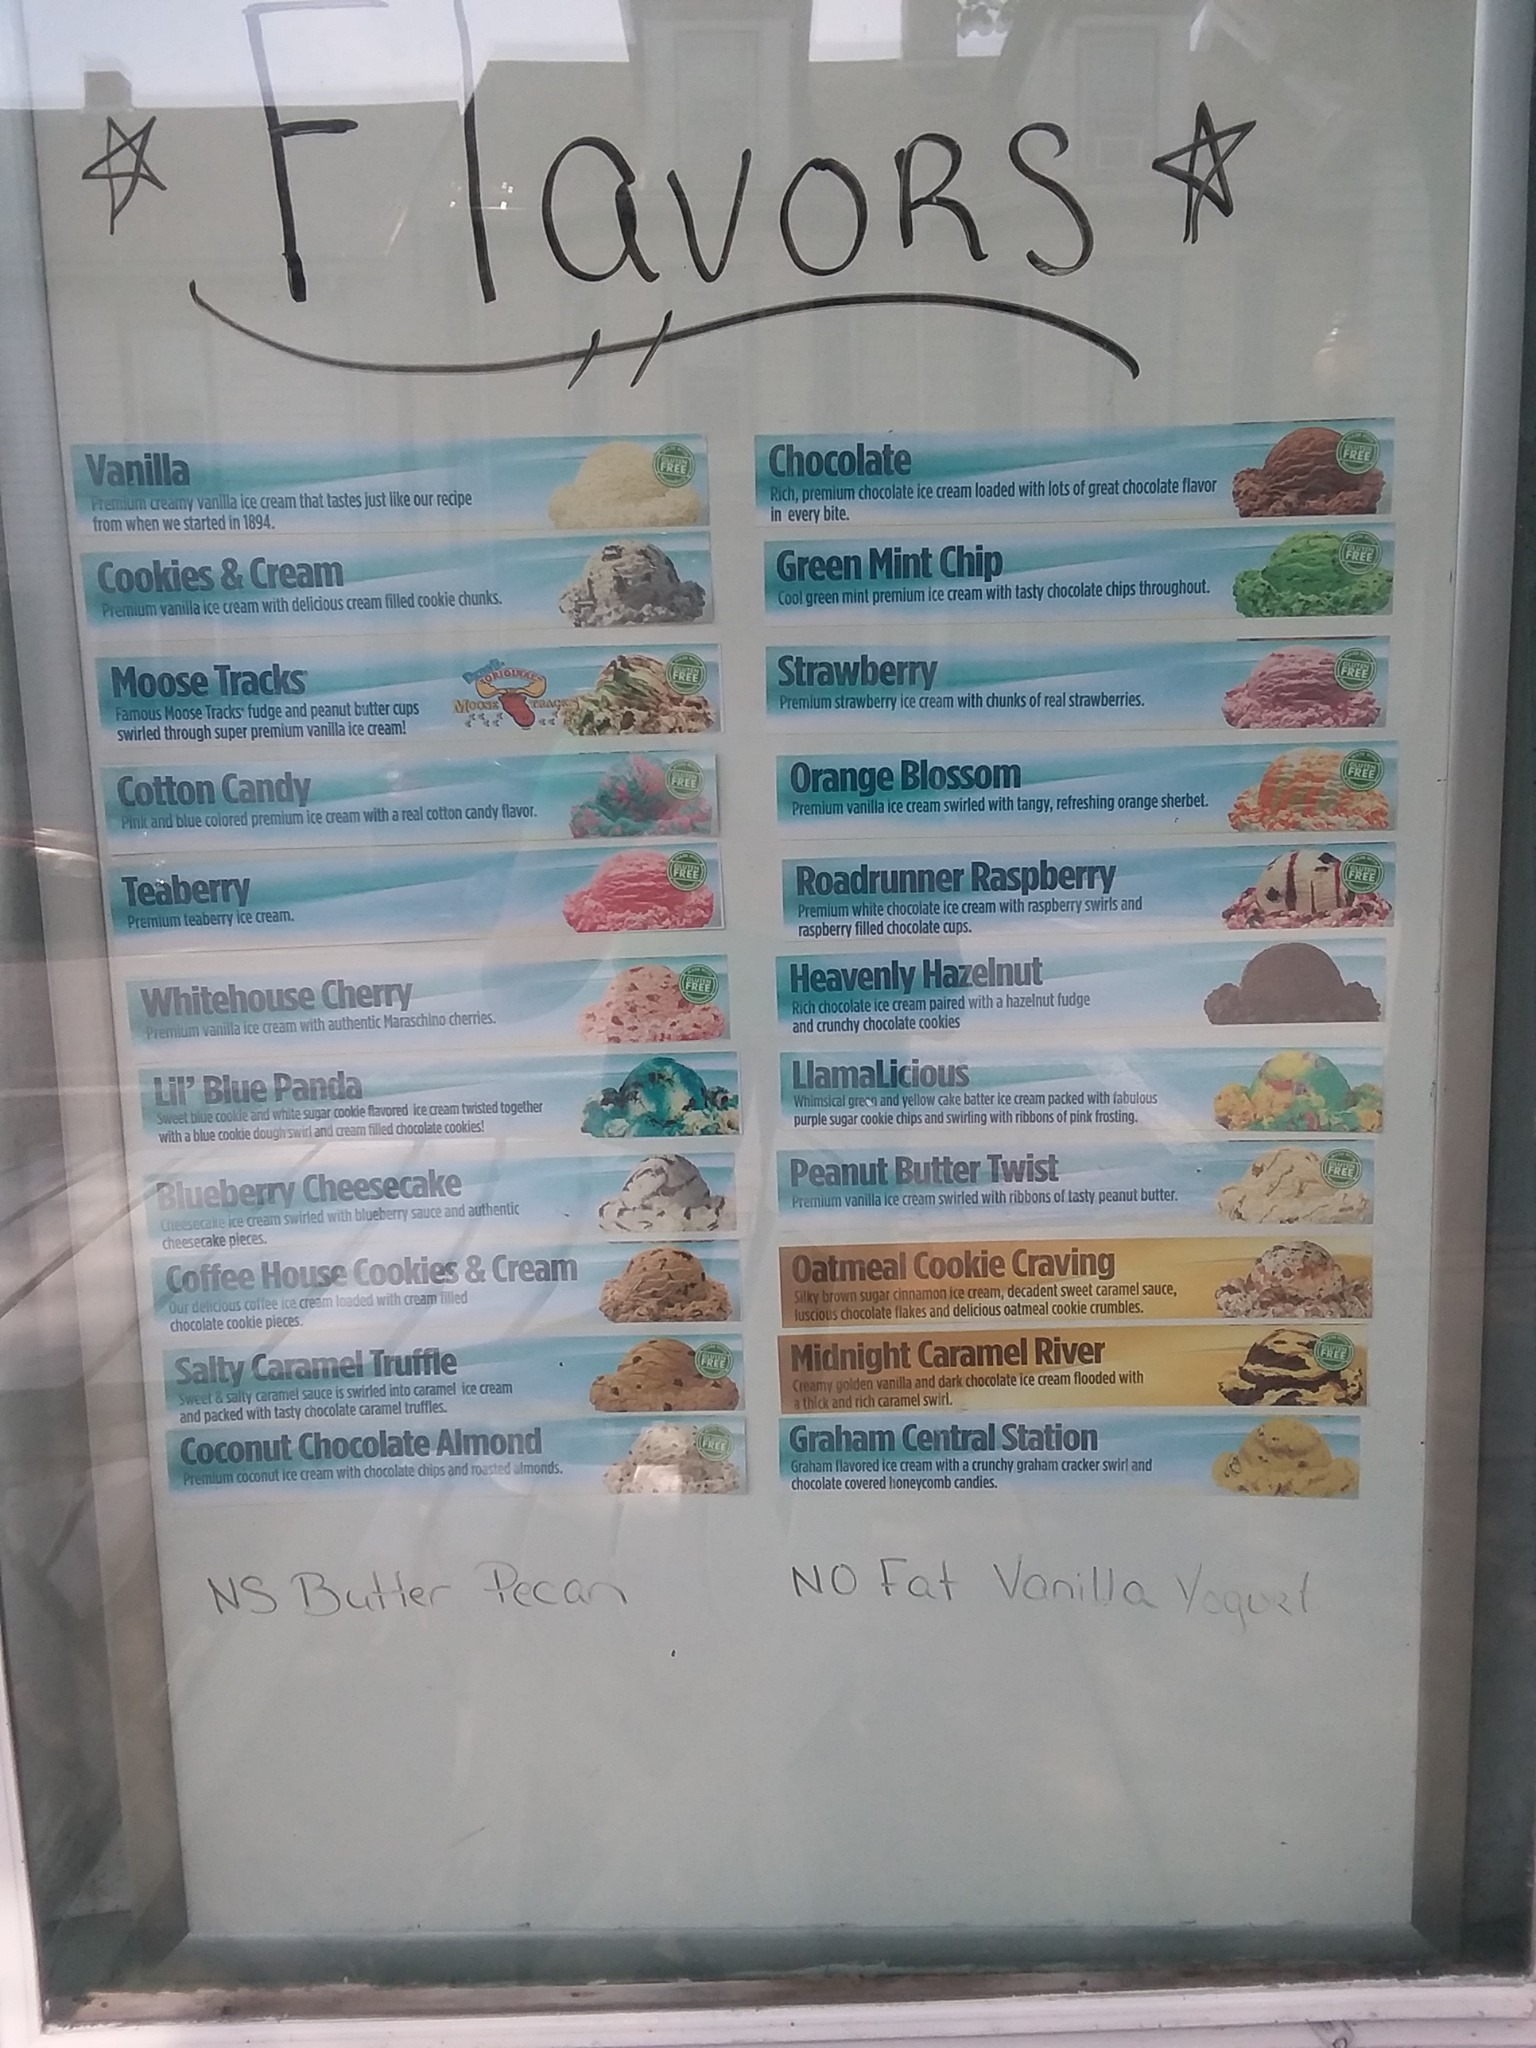 Flavors
Vanilla
Premium creamy vanilla ice cream that tastes just like our recipe
from when we started in 1894.
GLUTEN
FREE
Cookies & Cream
Premium vanilla ice cream with delicious cream filled cookie chunks.
Moose Tracks
Famous Moose Tracks fudge and peanut butter cups
swirled through super premium vanilla ice cream!
ORIGINAL
MOOSE TRACKS
GLUTEN
FREE
Cotton Candy
Pink and blue colored premium ice cream with a real cotton candy flavor.
GLUTEN
FREE
Teaberry
Premium teaberry ice cream.
GLUTEN
FREE
Whitehouse Cherry
Premium vanilla ice cream with authentic Maraschino cherries.
GLUTEN
FREE
Lil' Blue Panda
Sweet blue cookie and white sugar cookie flavored ice cream twisted together
with a blue cookie dough swirl and cream filled chocolate cookies!
Blueberry Cheesecake
Cheesecake ice cream swirled with blueberry sauce and authentic
cheesecake pieces.
Coffee House Cookies & Cream
Our delicious coffee ice cream loaded with cream filled
chocolate cookie pieces.
Salty Caramel Truffle
Sweet & salty caramel sauce is swirled into caramel ice cream
and packed with tasty chocolate caramel truffles.
GLUTEN
FREE
Coconut Chocolate Almond
Premium coconut ice cream with chocolate chips and roasted almonds.
GLUTEN
FREE
NS Butter Pecan
Chocolate
Rich, premium chocolate ice cream loaded with lots of great chocolate flavor
in every bite.
GLUTEN
FREE
Green Mint Chip
Cool green mint premium ice cream with tasty chocolate chips throughout.
GLUTEN
FREE
Strawberry
Premium strawberry ice cream with chunks of real strawberries.
GLUTEN
FREE
Orange Blossom
Premium vanilla ice cream swirled with tangy, refreshing orange sherbet.
GLUTEN
FREE
Roadrunner Raspberry
Premium white chocolate ice cream with raspberry swirls and
raspberry filled chocolate cups.
GLUTEN
FREE
Heavenly Hazelnut
Rich chocolate ice cream paired with a hazelnut fudge
and crunchy chocolate cookies
LlamaLicious
Whimsical green and yellow cake batter ice cream packed with fabulous
purple sugar cookie chips and swirling with ribbons of pink frosting.
Peanut Butter Twist
Premium vanilla ice cream swirled with ribbons of tasty peanut butter.
GLUTEN
FREE
Oatmeal Cookie Craving
Silky brown sugar cinnamon ice cream, decadent sweet caramel sauce,
luscious chocolate flakes and delicious oatmeal cookie crumbles.
Midnight Caramel River
Creamy golden vanilla and dark chocolate ice cream flooded with
a thick and rich caramel swirl.
GLUTEN
FREE
Graham Central Station
Graham flavored ice cream with a crunchy graham cracker swirl and
chocolate covered honeycomb candies.
NO Fat Vanilla Yogurt